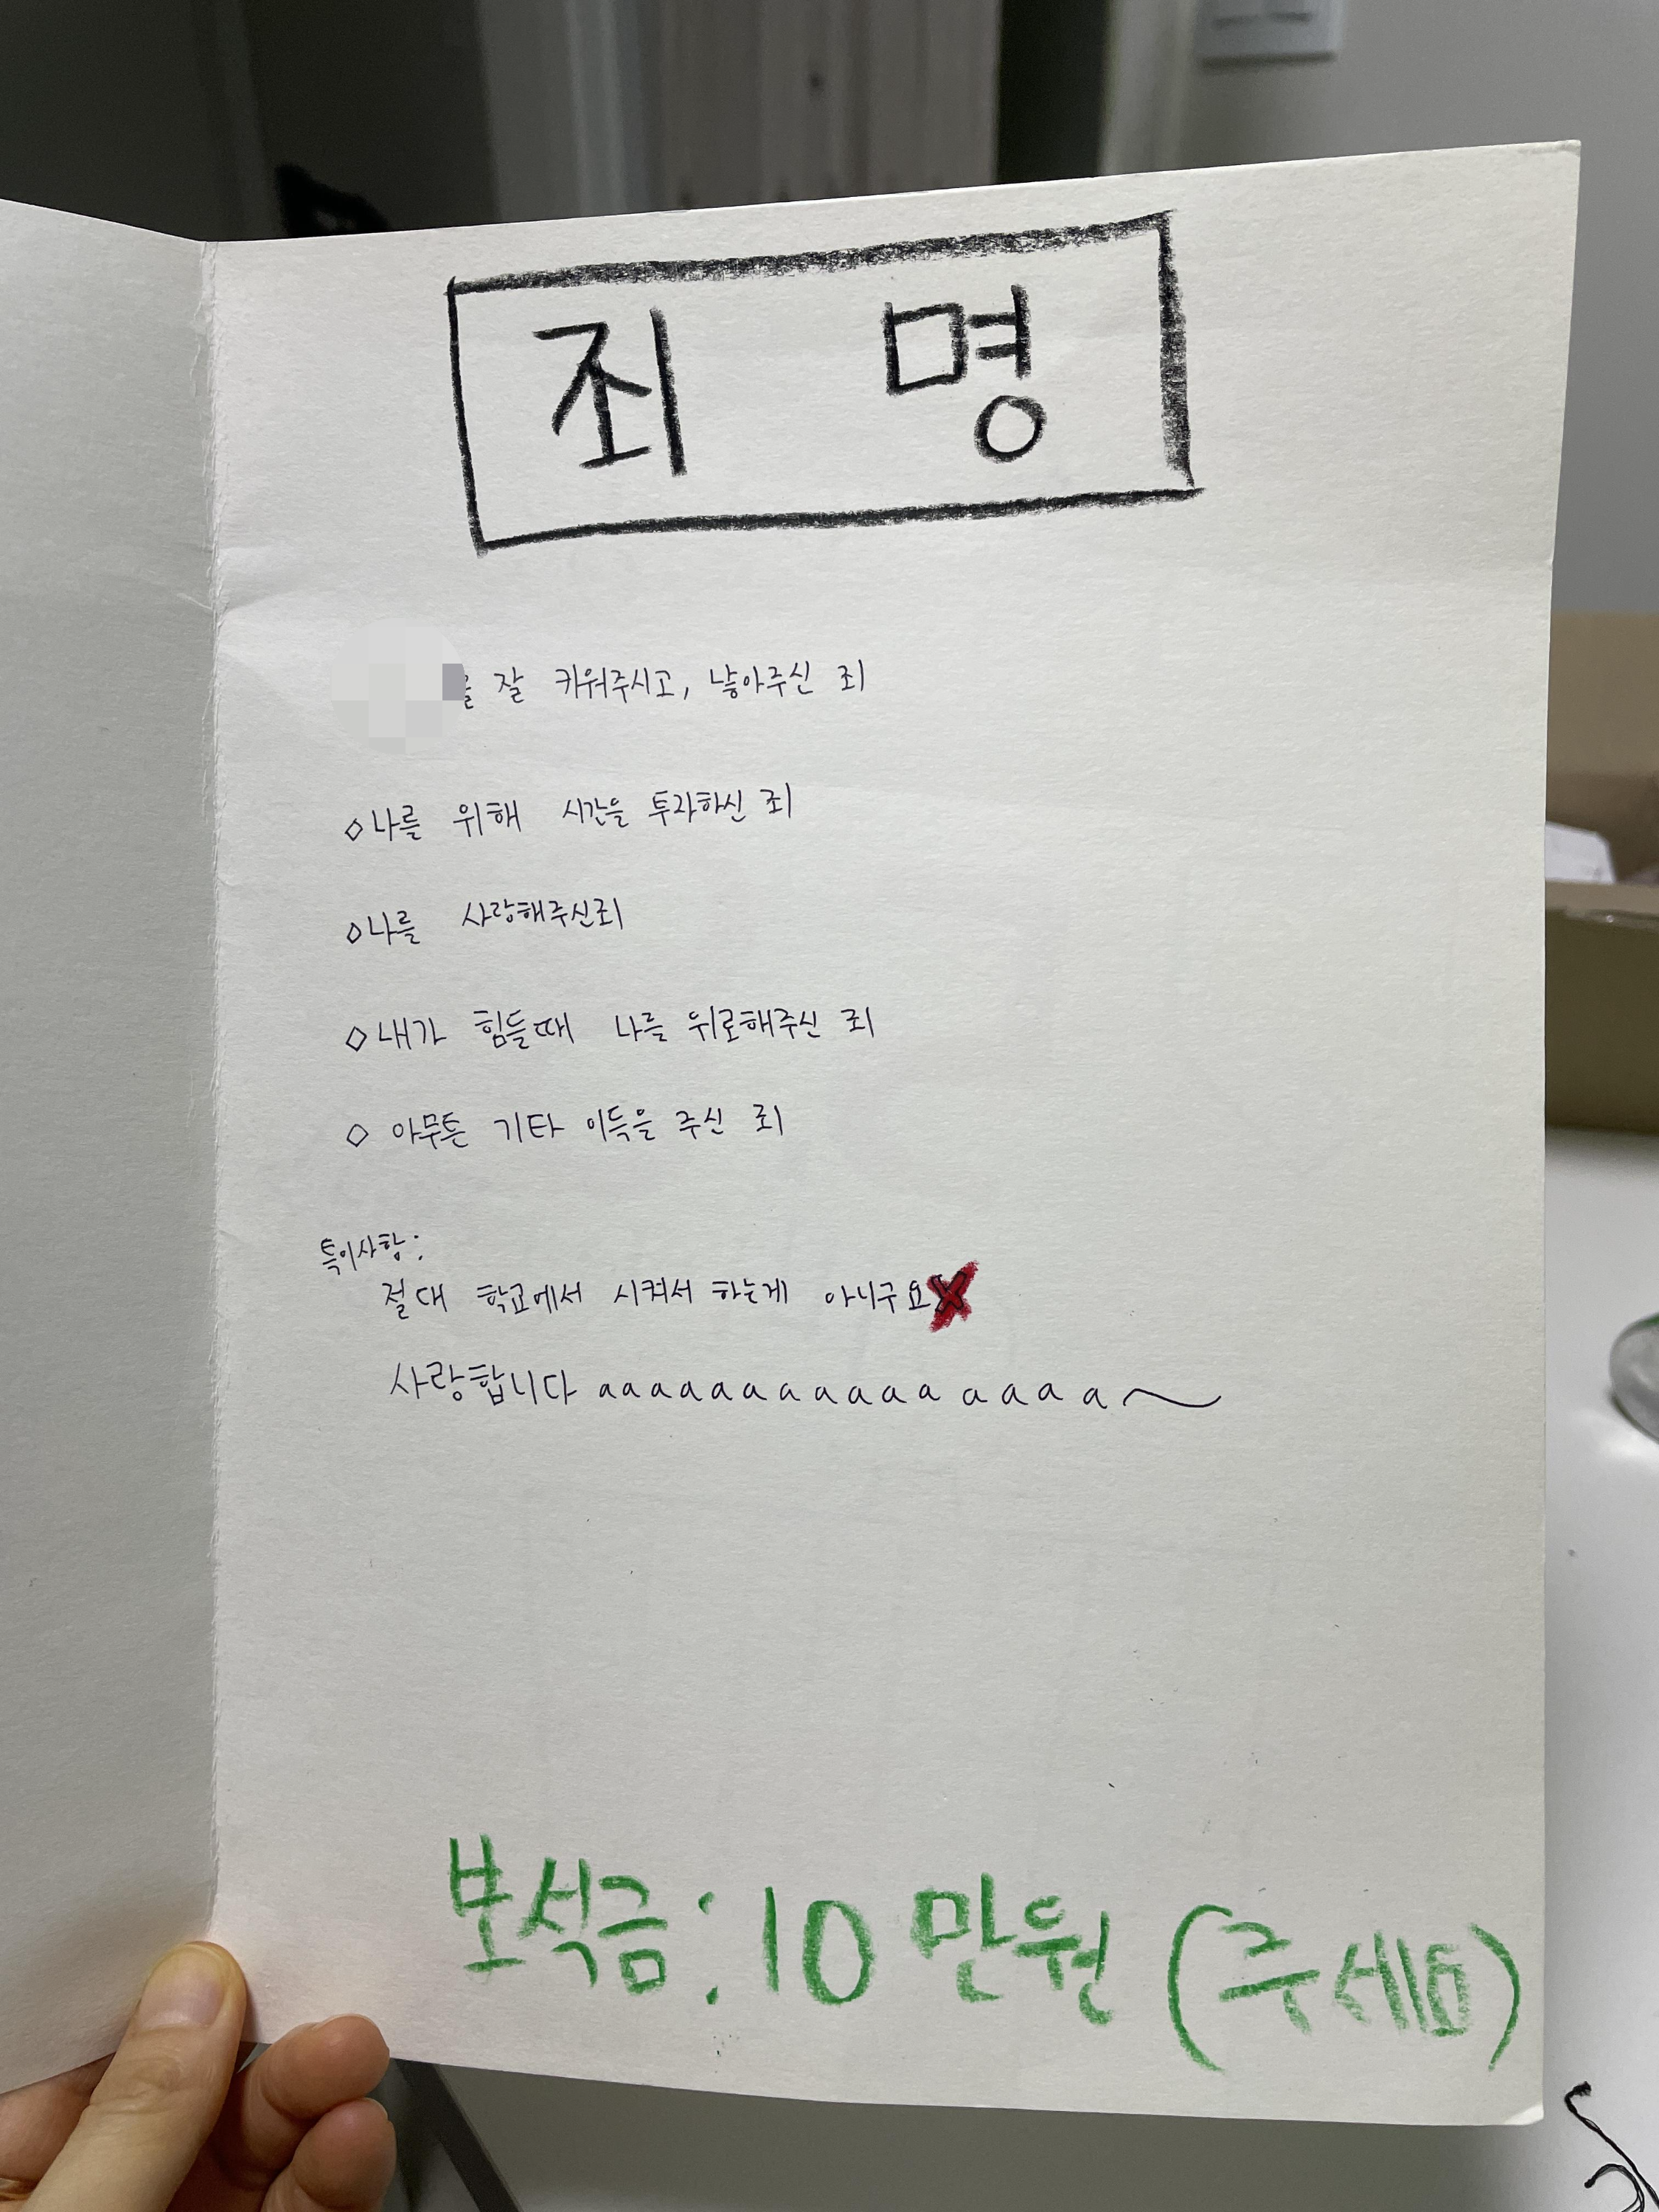 죄 명
를 잘 키워주시고, 낳아주신 죄
◇나를 위해 시간을 투자하신 죄
◇나를 사랑해주신죄
◇내가 힘들때 나를 위로해주신 죄
◇ 아무튼 기타 이득을 주신 죄
특이사항:
절대 학교에서 시켜서 하는게 아니구요
사랑합니다 aaaaaaaaaaa aaaa a~
보석금:10만원